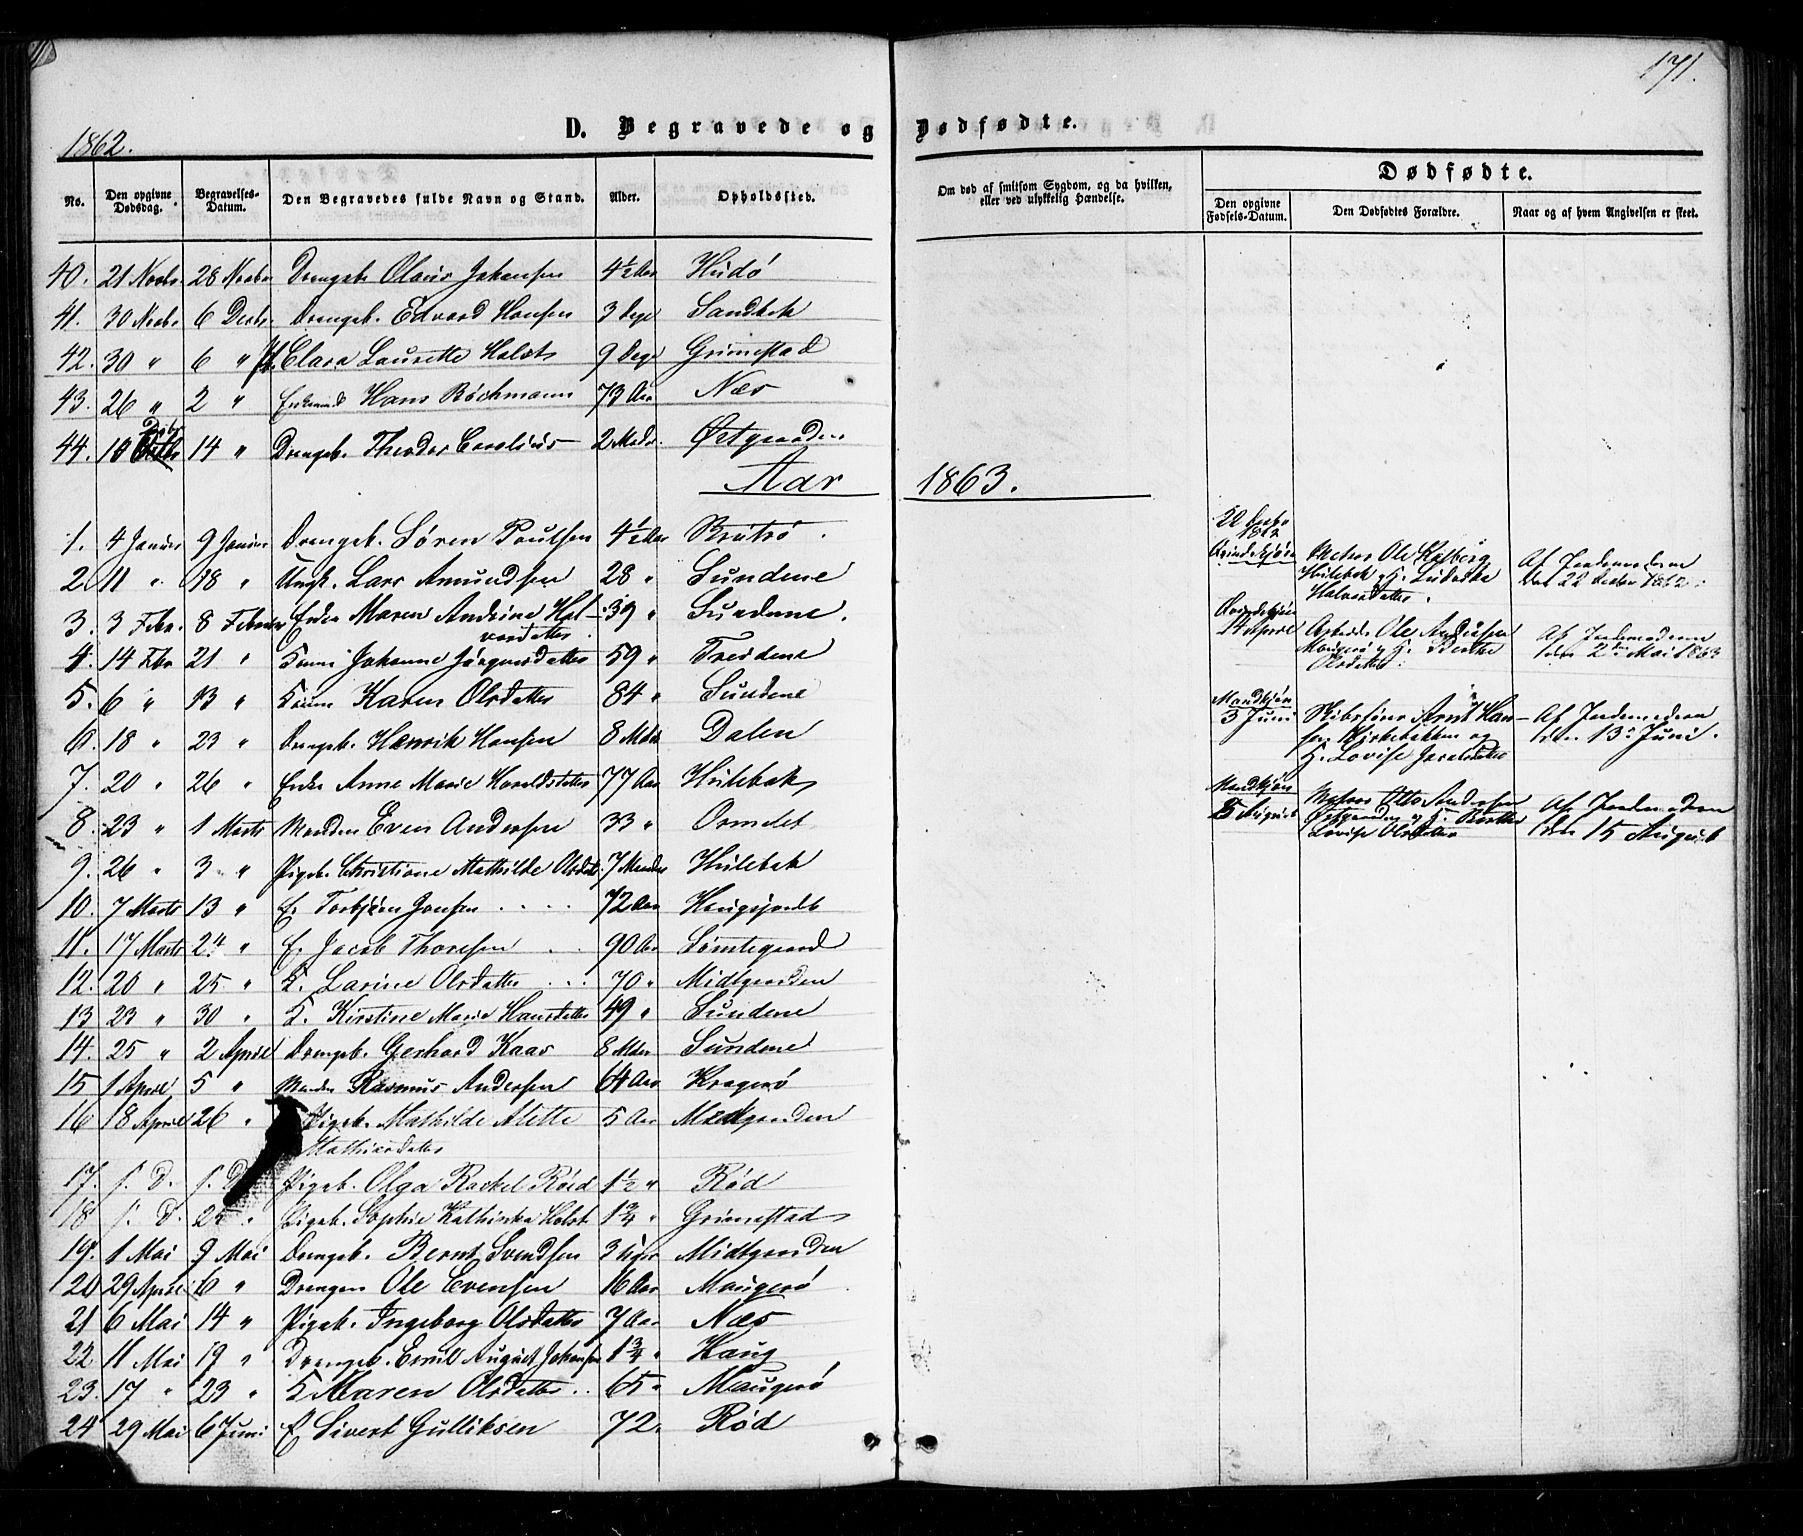 171.
1862.
D. Begravede og Dødfødte.
No.
Den opgivne Dødsdag.
Begravelses-Datum.
Den Begravedes fulde Navn og Stand.
Alder.
Opholdssted.
Om død af smitsom Sygdom, og da hvilken, eller ved ulykkelig Hændelse.
Dødfødte.
Den opgivne Fødsels-Datum.
Den Dødfødtes Forældre.
Naar og af hvem Angivelsen er skeet.
40. 21 Novbr. 28 Novbr Drengeb. Olaus Johansen 4½ Aar Hudø
41. 30 Novbr. 6 Decbr. Drengeb. Edvard Hansen 3 Dage Sandbek
42. 30 " 6 " Clara Laurette Holst 9 Dage Grimestad
43. 26 " 2 " Enkemand Hans Bochmann 73 Aar Næs
44. 10 Decbr 14 " Drengeb. Theodor Carolius 2 Mdr. Østgaarden
Aar 1863.
1. 4 Januar 9 Januar Drengeb. Sören Poulsen 4½ Aar Brötsö
2. 11 " 18 " Ungk. Lars Amundsen 28 " Sundene
3. 3 Febr. 8 Februar Enke Maren Andrine Hal-
vorsdatter 39 " Sundene.
4. 14 Febr 21 " Johanne Jörgensdatter 59 " Treidene
5. 6 " 13 " Karen Olsdatter 84 " Sundene
6. 18 " 23 " Drengeb. Henrik Hansen 8 Mdr Dalen
7. 20 " 26 " Enke Anne Marie Haraldsdatter 77 Aar Hulebak
8. 23 " 1 Marts Manden Even Andersen 33 " Ormelet
9. 26 " 3 " Pigeb. Christiane Mathilde Olsdatt. 7 Maander Hulebak
10. 7 Marts 13 " E. Torbjörn Jansen 72 Aar Haugsjordet
11. 17 Marts 24 " E. Jacob Thoresen 90 Aar Sömtegaard
12. 20 " 25 " E. Larine Olsdatter 70 " Midtgaarden
13 23 " 30 " K. Kirstine Marie Hansdatter 49 " Sundene
14. 25 " 2 April Drengeb. Gerhard Kaas 8 Mdr Sundene
15 1 April 5 " Manden Rasmus Andersen 64 Aar Kragerö
16 18 April 26 " Pigeb. Mathilde Alette
Mathisdatter 5 Aar Midtgaarden
17. s. D. s. D. Pigeb. Olga Rachel Röed 1½ " Rød
18 s. D. 25 " Pigeb. Sophie Kathinka Holst 1¾ " Grimestad
19. 1 Mai 9 Mai Drengeb. Bernt Svendsen 3 Uger Midtgaarden
20 29 April 6 " Drengen Ole Evensen 16 Aar Maugerö
21 6 Mai 14 " Pigeb. Ingeborg Olsdatter 7 Aar Næs
22 11 Mai 19 " Drengeb. Emil August Johansen 1¾ " Haug
23. 17 " 23 " K Maren Olsdatter 65 " Maugerö
24 29 Mai 6 Juni E Sivert Gulliksen 72. Rød
22 Decbr
1862
Qvindekjön
Matros Ole Kolberg
Hulebak og H. Ludovika
Halvorsdatter.
Af Jordemoderen
den 22 Decbr 1862.
Qvindekjön
14 April
Arbeidsm. Ole Andersen
Maugerö og H. Berthe
Olsdatter.
Af Jordemoderen
den 2den Mai 1863
Mandkjön
3 Juni
Skibsfører Arnt Han-
sen Kirkebakken og
H. Lovise Jacobsdatter
Af Jordemoderen
den 13de Juni.
Mandkjön
5 August
Matros Otto Andersen
Østgaarden og H. Berthe
Lovise Olsdatter
Af Jordemoderen
den 15 August